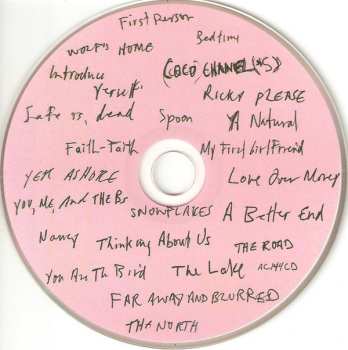 First Person
Bedtime
WOLF'S HOME
Introduce
Yerself
(COCO CHANEL(*S)
RICKY PLEASE
Safe vs. dead
Spoon
A Natural
FAITH-Faith
My First Girlfriend
YER ASHORE
Love Over Money
YOU, ME, AND THE Bs
SNOWFLAKES
A Better End
Nancy
Thinking About Us
THE ROAD
You Are Th Bird
The Lake
ACM4CD
FAR AWAY AND BLURRED
THE NORTH